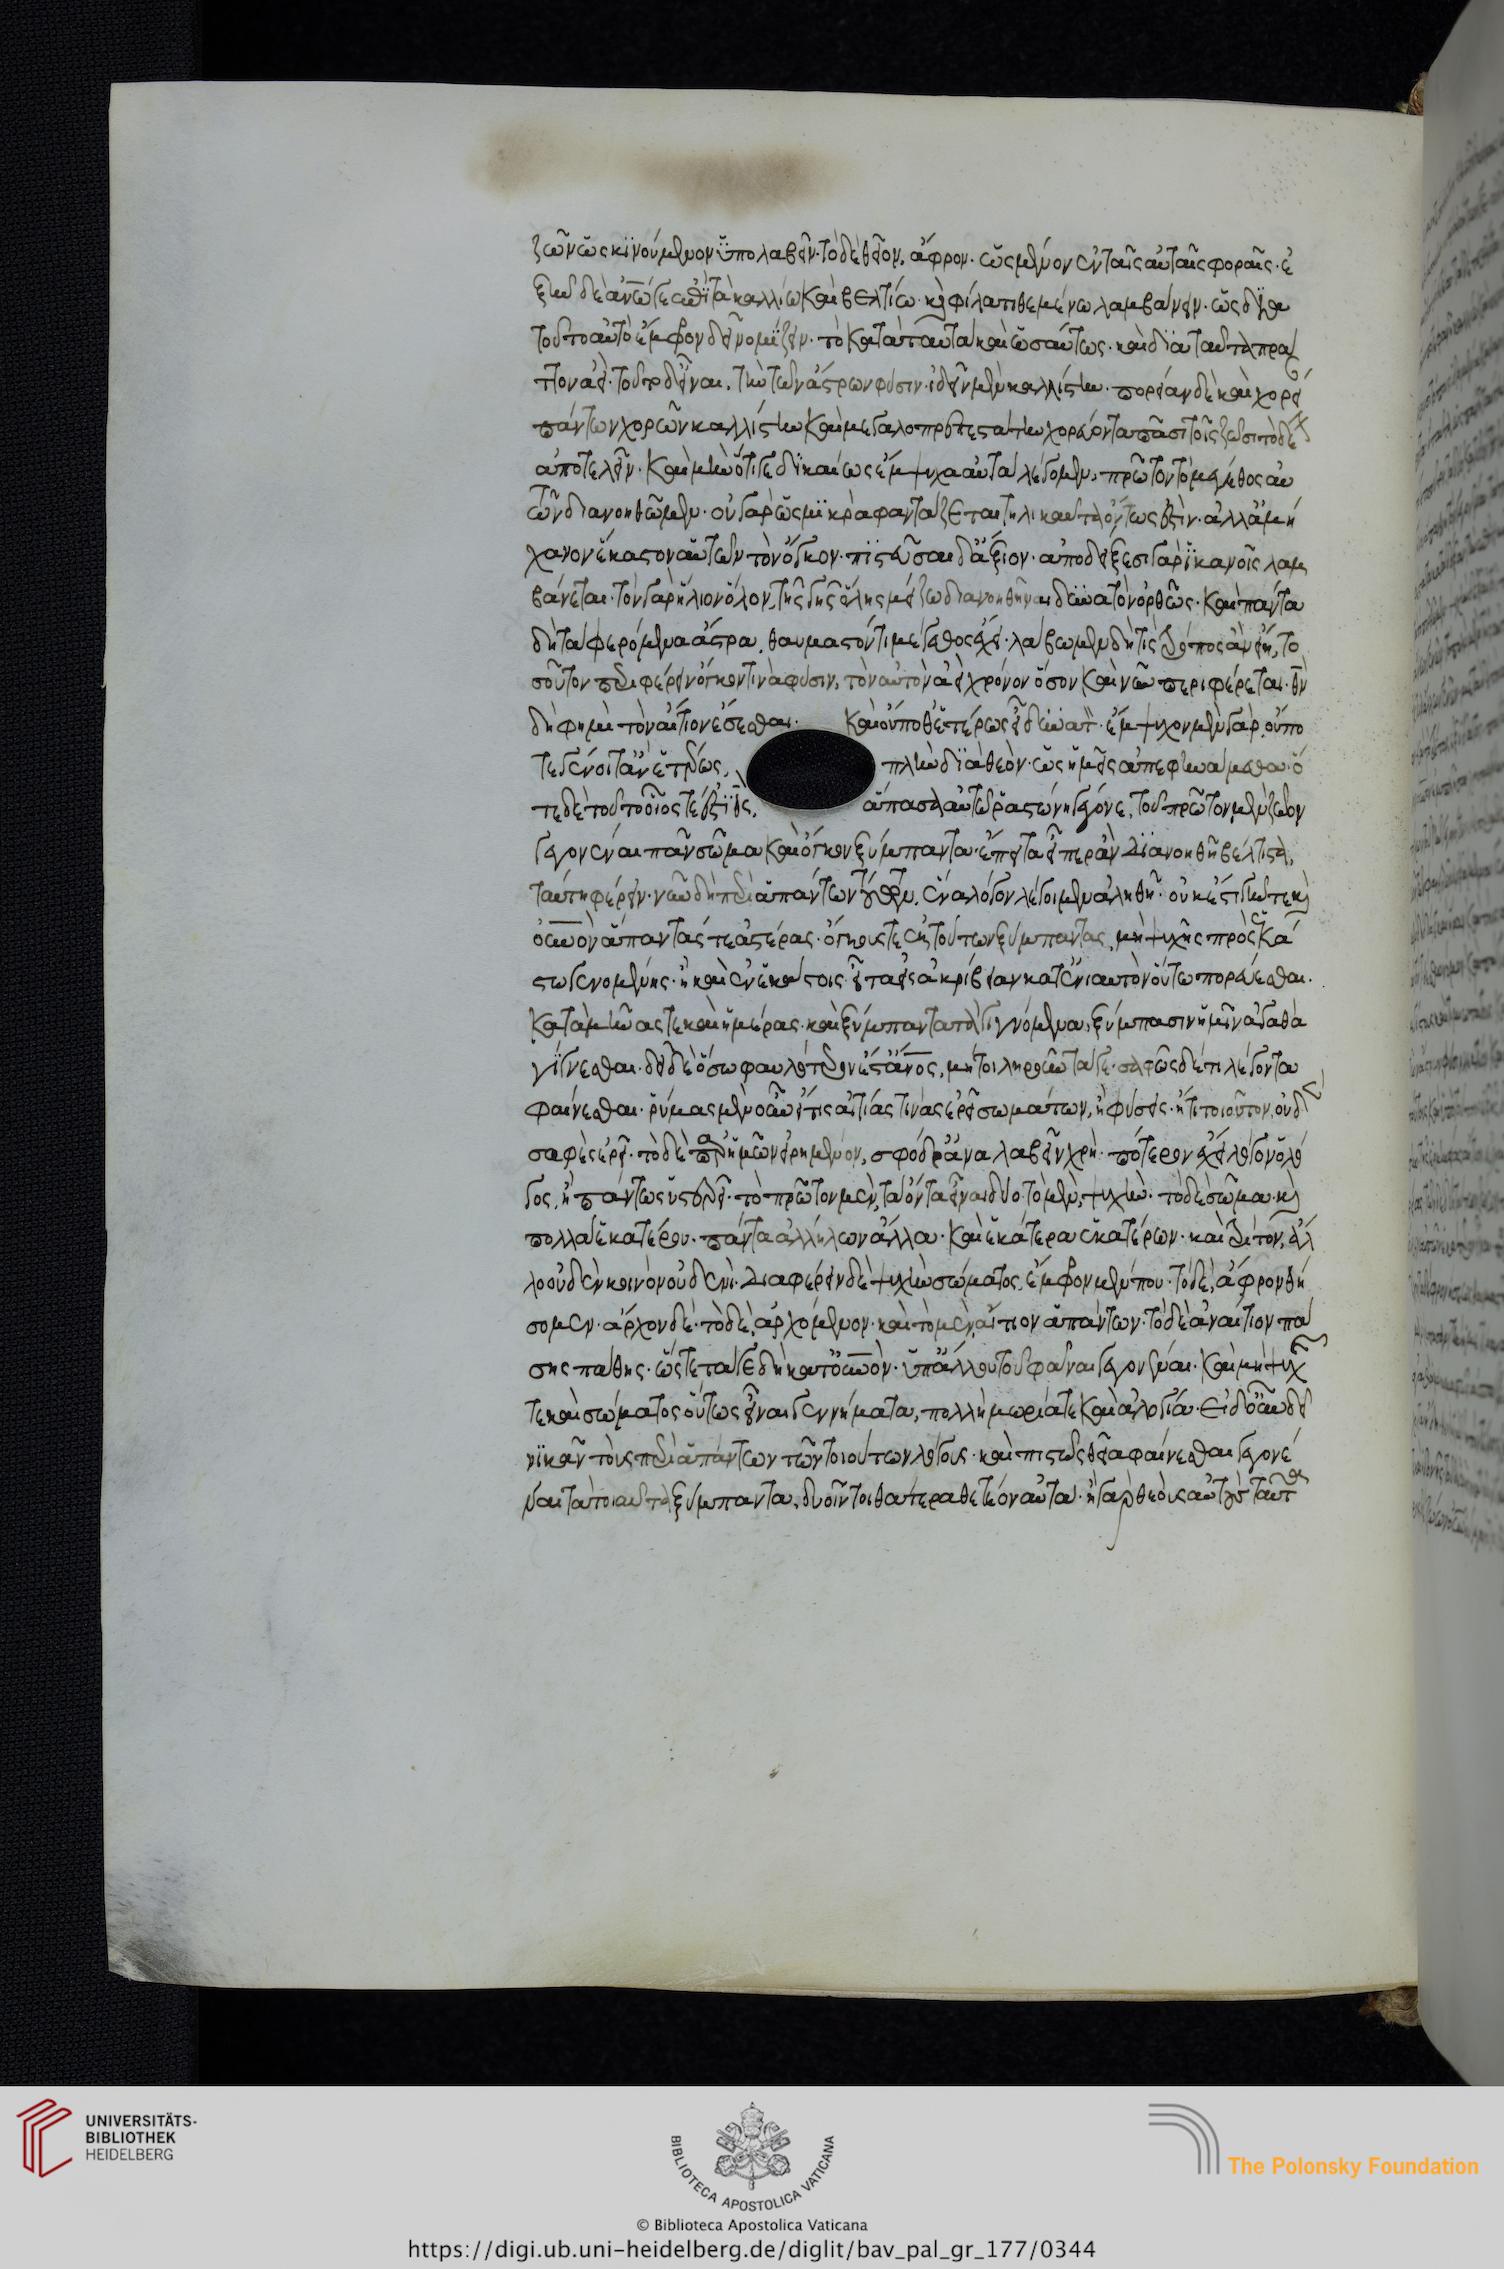 ζῶν ὡς κινούμενον ὑπολαβεῖν· τὸ δὲ θεῖον, ἄφρον· ὡς μένον ἐν ταῖς αὐταῖς φοραῖς· ἐ
ξῆν δὲ ἀν̅ω̅ γε ἐπὶ τὰ καλλίω καὶ βελτίω· καὶ φίλα τιθεμένω λαμβάνειν· ὡς δεῖ
τοῦτο αὐτὸ ἔμφρον δεῖ νομίζειν· τὸ κατὰ ταυτὰ καὶ ὡσαύτως· καὶ διὰ ταυτὰ πρα
ττον ἀεί· τοῦτο δ' εἶναι, τὴν τῶν ἄστρων φύσιν· ἰδεῖν μὲν καλλίστην· πορείαν δὲ καὶ χορεί
πάντων χορῶν καλλίστην καὶ μεγαλοπρεπεστάτην χορεύοντα πᾶσι τοῖς ζῶσι τὸ δέον
ἀποτελεῖν· καὶ μὴν ὅτι γε δικαίως ἔμψυχα αὐτὰ λέγομεν, πρῶτον τὸ μέγεθος αὐ
τῶν διανοηθῶμεν· οὐ γὰρ ὡς μικρὰ φαντάζεται τηλικαῦτα ὄντως ἐστὶν· ἀλλ' ἀμή
χανον ἕκαστον αὐτῶν τὸν ὄγκον· πιστεῦσαι δ' ἄξιον· ἀποδείξεσι γὰρ ἱκανοῖς λαμ
βάνεται· τὸν γὰρ ἥλιον ὅλον, τῆς γῆς ὅλης μείζω διανοηθῆναι δυνατὸν ὀρθῶς· καὶ πάντα
δὴ τὰ φερόμενα ἄστρα, θαυμαστόν τι μέγεθος ἔχει· λάβωμεν δὴ τίς τρόπος ἂν εἴη, το
σοῦτον περιφέρειν ὄγκον τινὰ φύσιν, τὸν αὐτὸν ἀεὶ χρόνον ὅσον καὶ νῦν περιφέρεται· θ̅ν̅
δή φημι τὸν αἴτιον ἔσεσθαι· καὶ οὔποθ' ἑτέρως εἶ δυνατὸν· ἔμψυχον μὲν γὰρ, οὔπο
τε γένοιτ' ἂν ἑτέρως, πλὴν διὰ θεὸν· ὡς ἡμεῖς ἀπεφηνάμεθα· ὅ
τε δὲ τοῦτο οἷος τέ ἐστι θ̅ς̅, ἅπασα αὐτῶ ῥαστώνη γέγονε, τοῦ πρῶτον μὲν ζῶον
γεγονέναι πᾶν σῶμα καὶ ὄγκον ξύμπαντα· ἔπειτα εἷπερ ἂν διανοηθῆ βέλτιστα,
ταύτη φέρειν· νῦν δὴ περὶ ἁπάντων τούτων, ἕνα λόγον λέγοιμεν ἀληθῆ· οὐκ ἔστι γῆν τε καὶ
ο̅υ̅ν̅ὸν ἅπαντάς τε ἀστέρας· ὄγκους τε ἐκ τούτων ξύμπαντας, μὴ ψυχῆς πρὸς ἑκά
στω γενομένης· ἢ καὶ ἐν ἑκάστοις· εἶτα εἰς ἀκρίβειαν κατ' ἐνιαυτὸν οὕτω πορεύεσθαι·
κατὰ μῆνας τε καὶ ἡμέρας· καὶ ξύμπαντα τὰ γιγνόμενα, ξύμπασιν ἡμῖν ἀγαθὰ
γίγνεσθαι· δεῖ δὲ ὅσω φαυλότερον ἐστ' ἄν̅ος, μή τοι ληροῦντα γε· σαφῶς δέ τι λέγοντα
φαίνεσθαι· ῥύμας μὲν οὖν εἴ τις αἰτίας τινὰς ἐρεῖ σωμάτων, ἢ φύσεις· ἤ τι τοιοῦτον, οὐδὲν
σαφὲς ἐρεῖ· τὸ δὲ παρ' ἡμῶν εἰρημένον, σφόδρα ἀναλαβεῖν χρὴ· πότερον ἔχει λόγον ὁ λό
γος, ἢ πάντως ὑστερεῖ· τὸ πρῶτον μὲν, τὰ ὄντα εἶναι δύο· τὸ μὲν, ψυχὴν· τὸ δὲ σῶμα· καὶ
πολλὰ ἑκατέρου· πάντα ἀλλήλων ἄλλα· καὶ ἑκάτερα ἑκατέρων· καὶ τρίτον, ἄλ
λο οὐδὲν κοινὸν οὐδενὶ· διαφέρειν δὲ ψυχὴν σώματος, ἔμφρον μέν που· τὸ δὲ, ἄφρον θή
σομεν· ἄρχον δέ· τὸ δὲ, ἀρχόμενον· καὶ τὸ μὲν, αἴτιον ἁπάντων· τὸ δὲ ἀναίτιον πά
σης πάθης· ὥστε τά γε δὴ κατ' ο̅υ̅ν̅ὸν· ὑπ' ἄλλου του φάναι γεγονέναι· καὶ μὴ ψυχῆς
τε καὶ σώματος οὕτως εἶναι γεννήματα, πολλὴ μωρία τε καὶ ἀλογία· εἰ δ' οὖν δεῖ
νικᾶν τοὺς περὶ ἁπάντων τῶν τοιούτων λόγους· καὶ πιστῶς θεῖα φαίνεσθαι γεγονέ
ναι τὰ τοιαῦτα ξύμπαντα, δυοῖν τοι θάτερα θετέον αὐτὰ· ἢ γὰρ θεοὺς αὐτοὺς ταῦτα
UNIVERSITÄTS-
BIBLIOTHEK
HEIDELBERG
BIBLIOTECA APOSTOLICA VATICANA
The Polonsky Foundation
© Biblioteca Apostolica Vaticana
https://digi.ub.uni-heidelberg.de/diglit/bav_pal_gr_177/0344